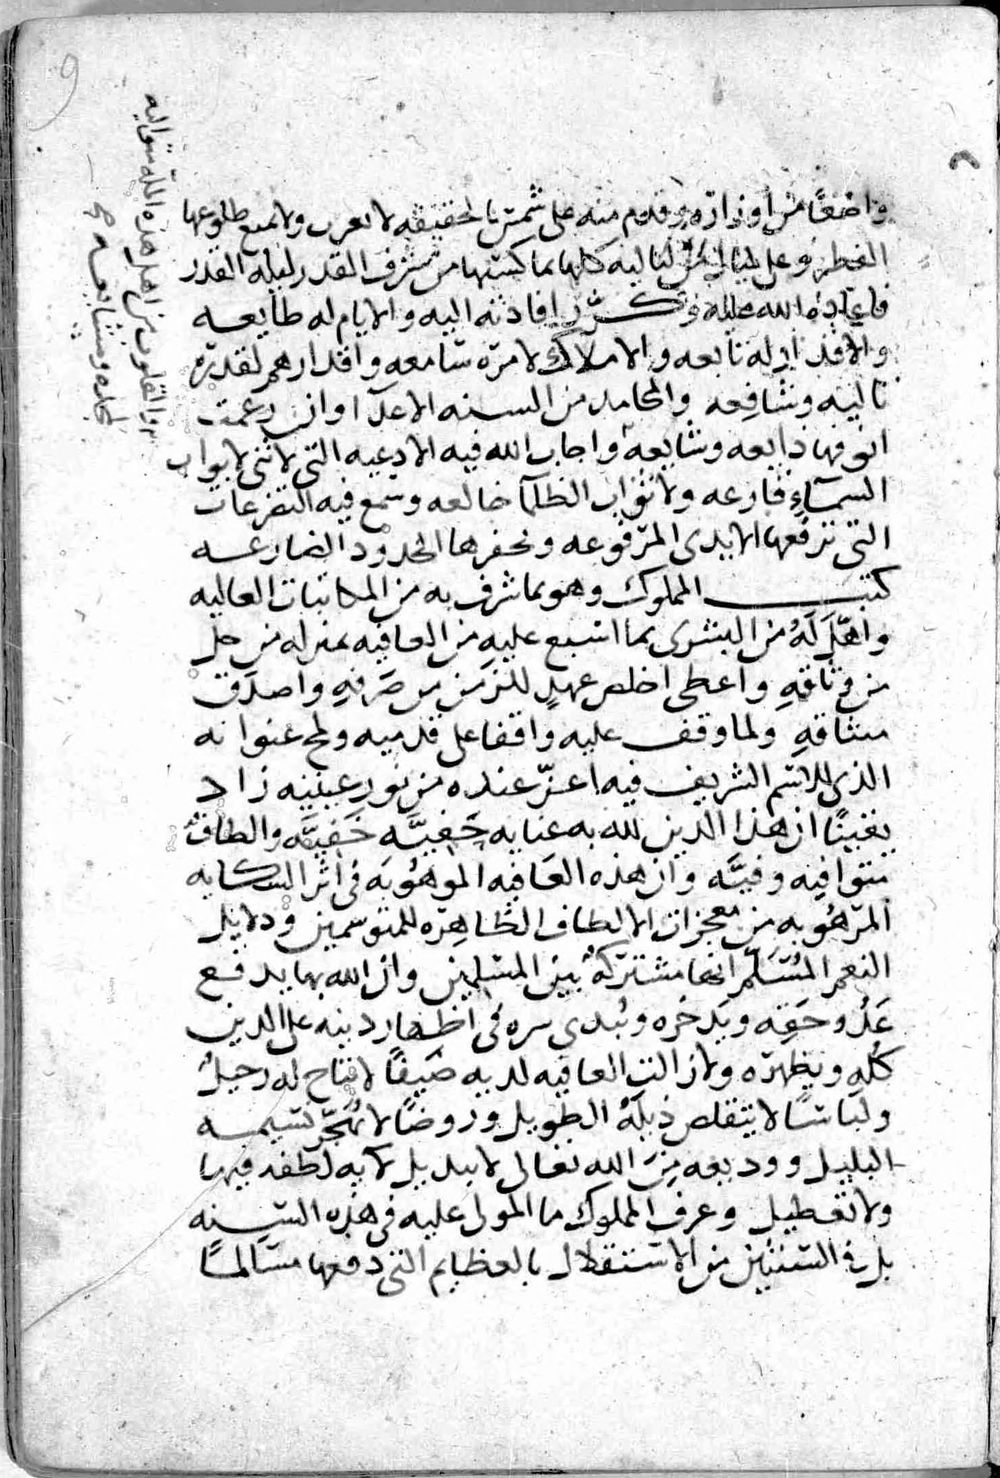 واضعًا من اوزاره وقدوم منه على شمس بالحقيقه لا تغرب ولا يمنع طلوعها
الفطر وعلى ليال لياليه كلها بما كسبتها من شرف القدر ليلة القدر
فاعاده الله عليه وكرر افادته اليه والايام له طايعه
والاقدار له تابعه والاملاك لامره سامعه واقدارهم لقدره
تاليه وشافعه والمحامد من السنه الاعدا وان رغمت
انوفها ذايعه وشايعه واجاب الله فيه الادعيه التى لا تنى لابواب
السماء قارعه ولا ثواب الظلما خالعه وسمع فيه التضرعات
التى ترفعها الايدى المرفوعه وتحفرها الخدود الضارعه
كتب المملوك وهو بما شرف به من المكاتبات العاليه
واهل له من البشرى بما اسبغ عليه من العافيه بمنزله من حل
من وثاقه واعطى اخلص عهد للزمن من صرفه واصدق
ميثاقه ولما وقف عليه واقفا على قدميه ولمح عنوانه
الذى للاسم الشريف فيه اعز عنده من نور عينيه زاد
يقينًا ان هذا الدين لله به عنايه حفيه خفيه والطاف
متوافيه وفيه وان هذه العافيه الموهوبه فى اثر الشكايه
المرهوبه من معجزات الالطاف الظاهره للمتوسمين ودلايل
النعم المسلم انها مشتركه بين المسلمين وان الله بها يدفع
عدو حقه ويدخره ويبدى سره فى اظهار دينه على الدين
كله ويظهره ولا زالت العافيه لديه ضيفًا لا يتاح له رحيل
ولباسًا لا يتقلص ذيله الطويل وروضًا لا يهجر نسيمه
البليل ووديعه من الله تعالى لا تبديل لآيه لطفه فيها
ولا تعطيل وعرف المملوك ما المولى عليه فى هذه السنه
بل فى السنتين من الاستقلال بالعظايم التى دفعها مسالمًا
والقلوب من اهل هذه المله متواليه
ومشايعه